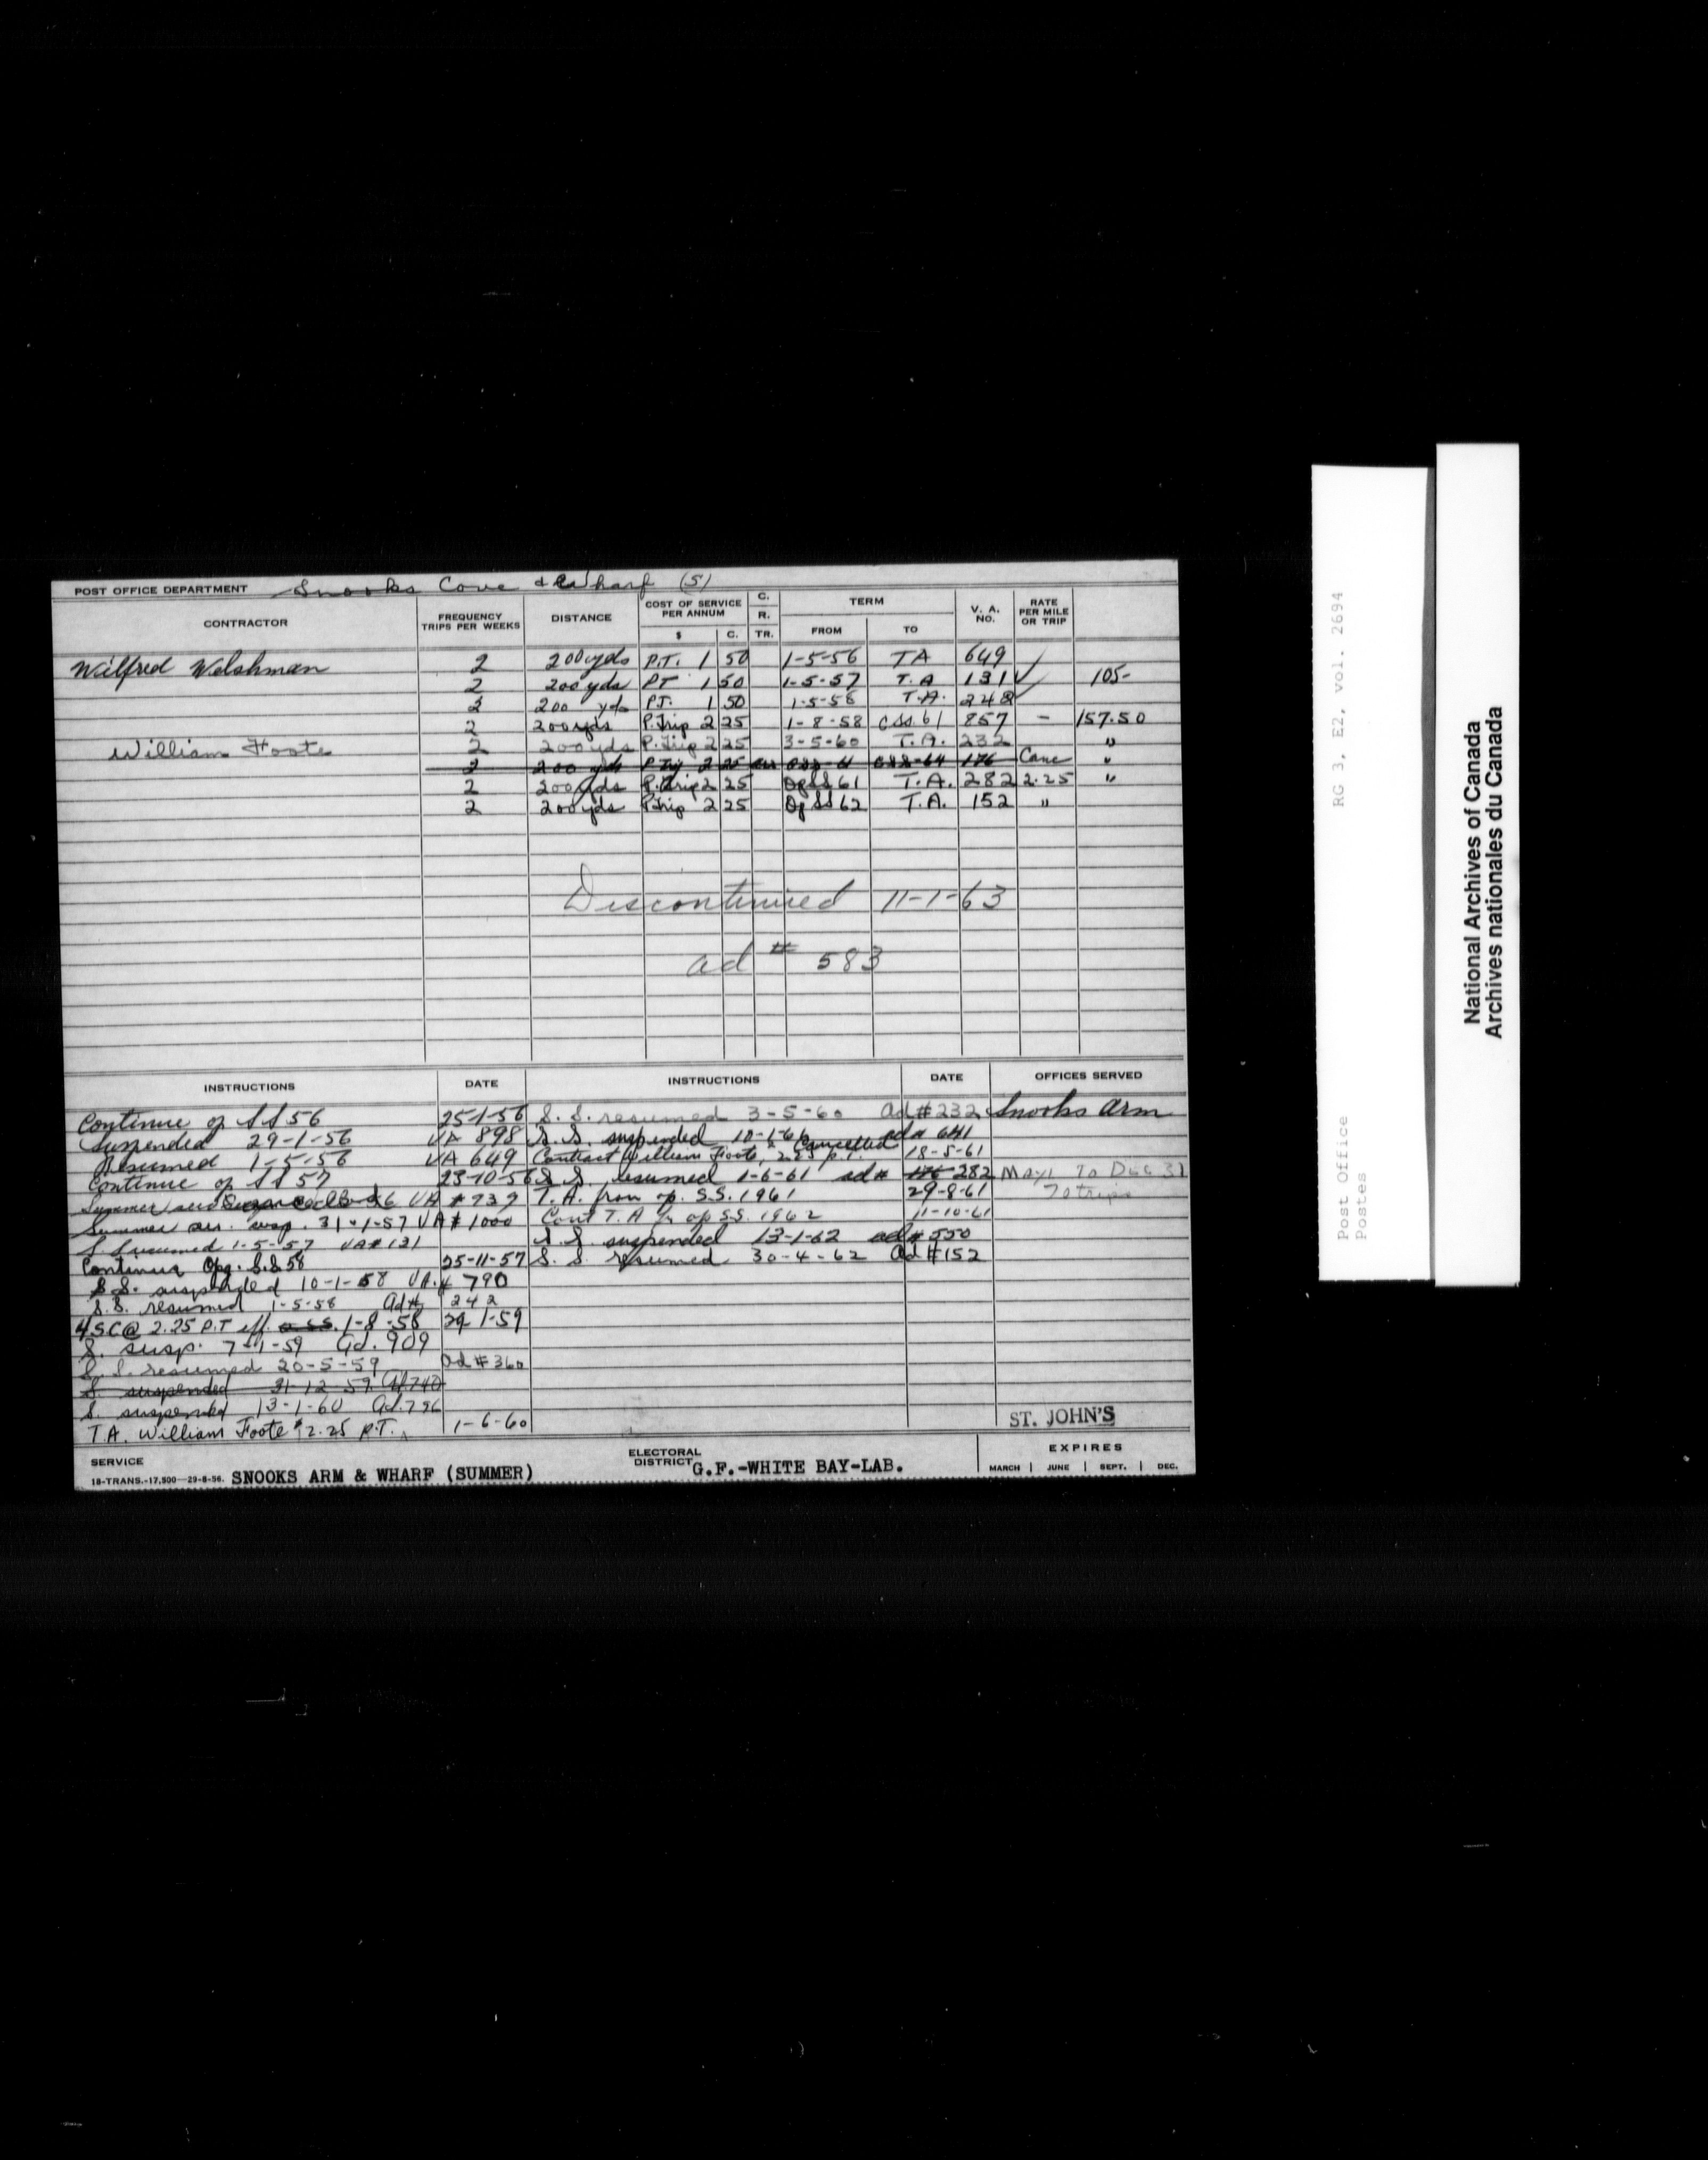 POST OFFICE DEPARTMENT Snooks Cove & Wharf (S)
CONTRACTOR FREQUENCY TRIPS PER WEEKS DISTANCE COST OF SERVICE PER ANNUM $ C. C. R. TR. TERM FROM TO V. A. NO. RATE PER MILE OR TRIP
Wilfred Welshman 2 200 yds P.T. 1 50 1-5-56 TA 649
2 200 yds PT 1 50 1-5-57 T.A 131 105-
2 200 yds PT. 1 50 1-5-58 T.A. 242
2 200 yds P. Trip 2 25 1-8-58 css. 61 857 - 157.50
William Foote 2 200 yds P. Trip 2 25 3-5-60 T.A. 232 "
2 200 yds P Trip 2 25 oss-61 css-64 176 Canc "
2 200 yds P. Trip 2 25 Op SS 61 T.A. 282 2.25 "
2 200 yds P. Trip 2 25 Op SS 62 T.A. 152 "
Discontinued 11-1-63
ad # 583
INSTRUCTIONS DATE INSTRUCTIONS DATE OFFICES SERVED
Continue op SS 56 25-1-56 S. S. resumed 3-5-60 Ad #232 Snooks Arm
Suspended 29-1-56 VA 898 S. S. suspended 10-1-61 ad # 641
Resumed 1-5-56 VA 649 Contract William Foote, 2.25 P.T. Cancelled 18-5-61
Continue op SS 57 23-10-56 S. S. resumed 1-6-61 ad # 176 282 May 1 to Dec 31
Summer serv VA # 739 T. A. from op. S.S. 1961 29-8-61 70 trips
Summer ser. susp. 31-1-57 VA # 1000 Cont T.A fr op S.S. 1962 11-10-61
S resumed 1-5-57 VA# 131 S. S. suspended 13-1-62 ad # 550
Continue Opg. S.S 58 25-11-57 S. S. resumed 30-4-62 Ad #152
S.S. suspended 10-1-58 VA. # 790
S.S. resumed 1-5-58 Ad # 242
4SC@ 2.25 P.T eff. o S.S. 1-8-58 29 1-59
S. susp. 7-1-59 Ad. 909
S. S. resumed 20-5-59 Ad #360
S. suspended 31-12-59 Ad. 740
S. suspended 13-1-60 Ad. 796
T.A. William Foote $2.25 P.T. 1-6-60
ST. JOHN'S
SERVICE SNOOKS ARM & WHARF (SUMMER) ELECTORAL DISTRICT G.F.-WHITE BAY-LAB. EXPIRES MARCH | JUNE | SEPT. | DEC.
18-TRANS.-17,500-29-8-56.
RG 3, E2, vol. 2694
Post Office
Postes
National Archives of Canada
Archives nationales du Canada